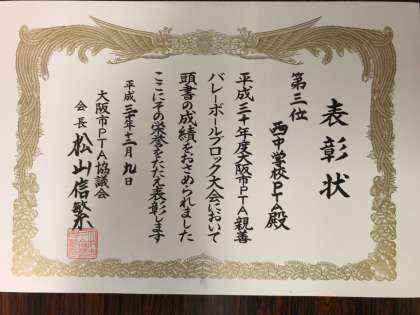 表彰状
第三位
西中学校PTA殿
平成三十年度大阪市PTA親善
バレーボールブロック大会において
頭書の成績をおさめられました
ここにその栄誉をたたえ表彰します
平成三十年十二月九日
大阪市PTA協議会
会長 松山信繁